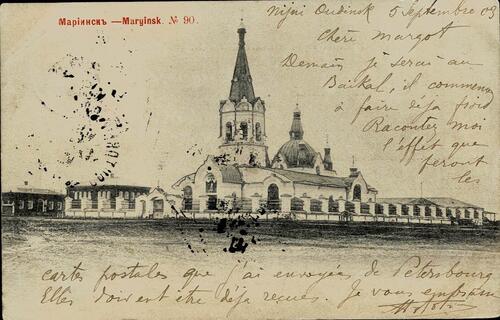 Маріинскъ —Maryinsk. № 90.
Nijni Oudinsk 5 Septembre 03
Chère Margot
Demain je serai au
Baïkal, il commence
à faire déja froid
Racontez moi
l'effet que
feront
les
cartes postales que j'ai envoyées de Petersbourg
Elles doivent être déja reçues. Je vous embrasse